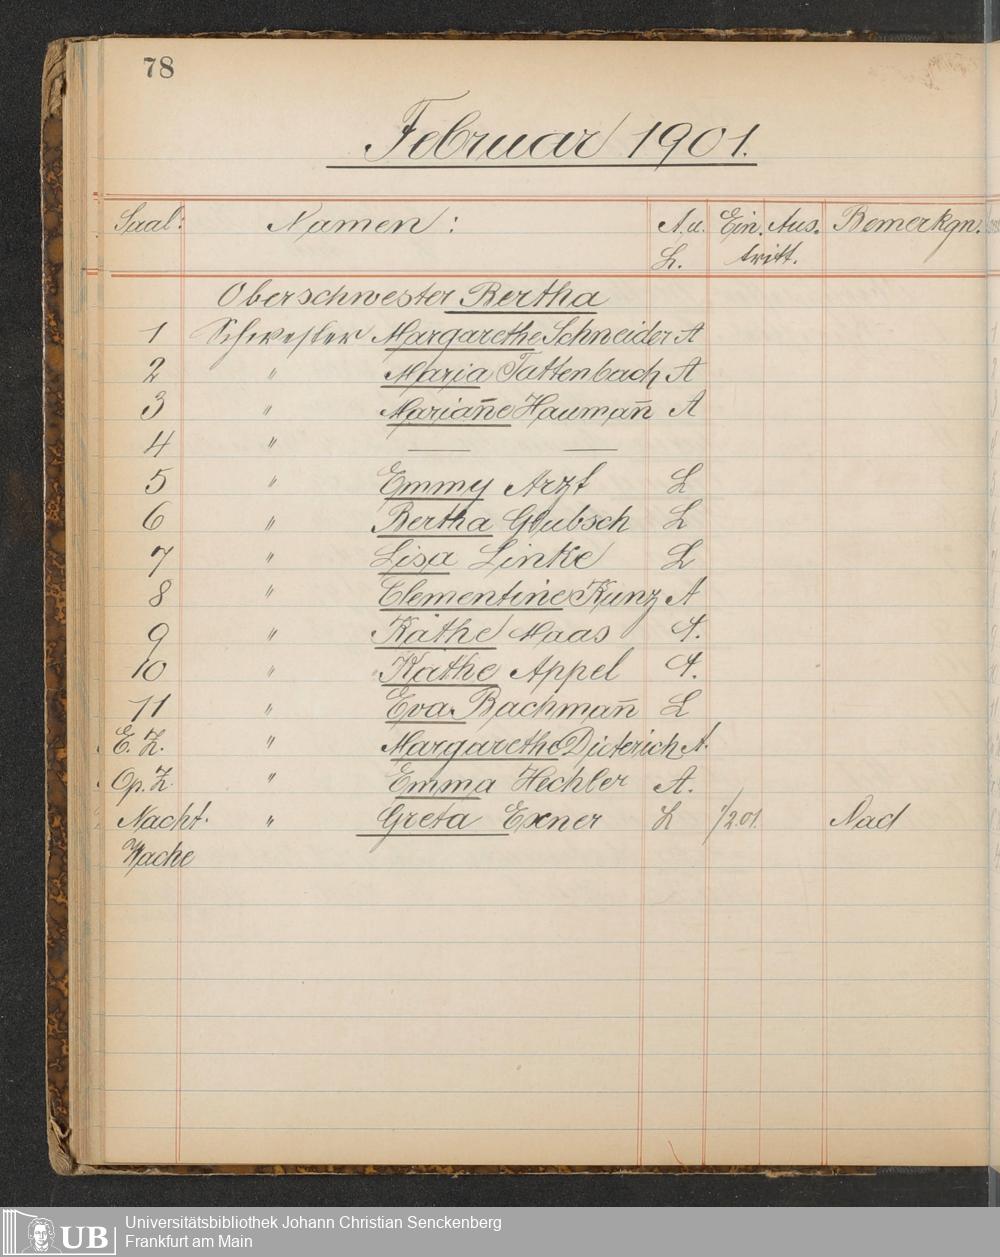 78
Februar 1901.
Saal: Namen: A.u. Ein. Aus. Bemerkgn.
L. tritt.
Oberschwester Bertha
1 Schwester Margarethe Schneider A
2 " Maria Tattenbach A
3 " Mariañe Haumañ A
4 " — —
5 " Emmy Arzt L
6 " Bertha Glubsch L
7 " Lisa Linke L
8 " Clementine Kunz A
9 " Käthe Maas A.
10 " Käthe Appel A.
11 " Eva Bachmañ L
E. Z. " Margarethe Dieterich A.
Op. Z. " Emma Hechler A.
Nacht- " Greta Exner L 1/2.01.
Wache
UB
Universitätsbibliothek Johann Christian Senckenberg
Frankfurt am Main